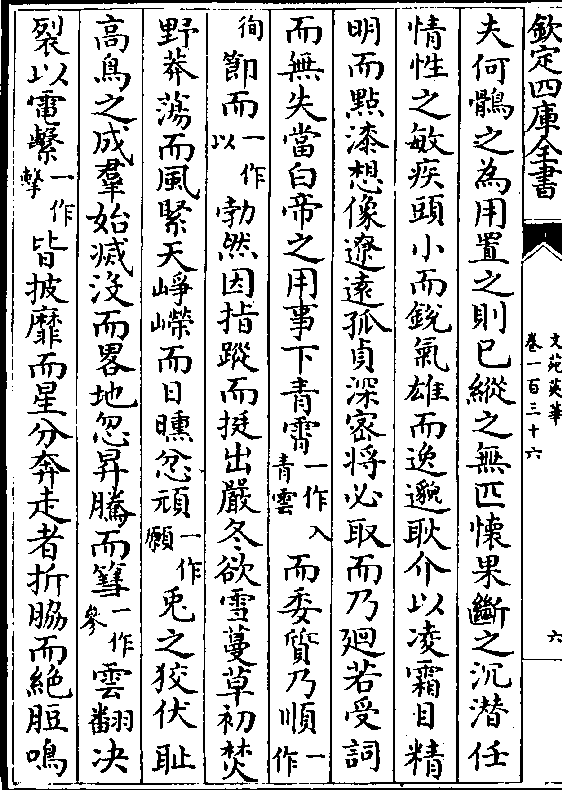 欽定四庫全書
文苑英華
卷一百三十六
六
夫何鶻之為用置之則已縱之無匹懷果斷之沉潜任
情性之敏疾頭小而鋭氣雄而逸邈耿介以凌霜目精
明而點漆想像遼遠孤貞深宻将必取而乃廻若受詞
而無失當白帝之用事下青霄一作入青雲而委質乃順一作
徇節而一作以勃然因指蹤而挺出嚴冬欲雪蔓草初焚
野莽蕩而風緊天崢嶸而日曛忿頑一作願兎之狡伏耻
高鳥之成羣始滅没而畧地忽昇騰而篲一作參雲翻决
裂以電繫一作擊皆披靡而星分奔走者折脇而絶脰鳴